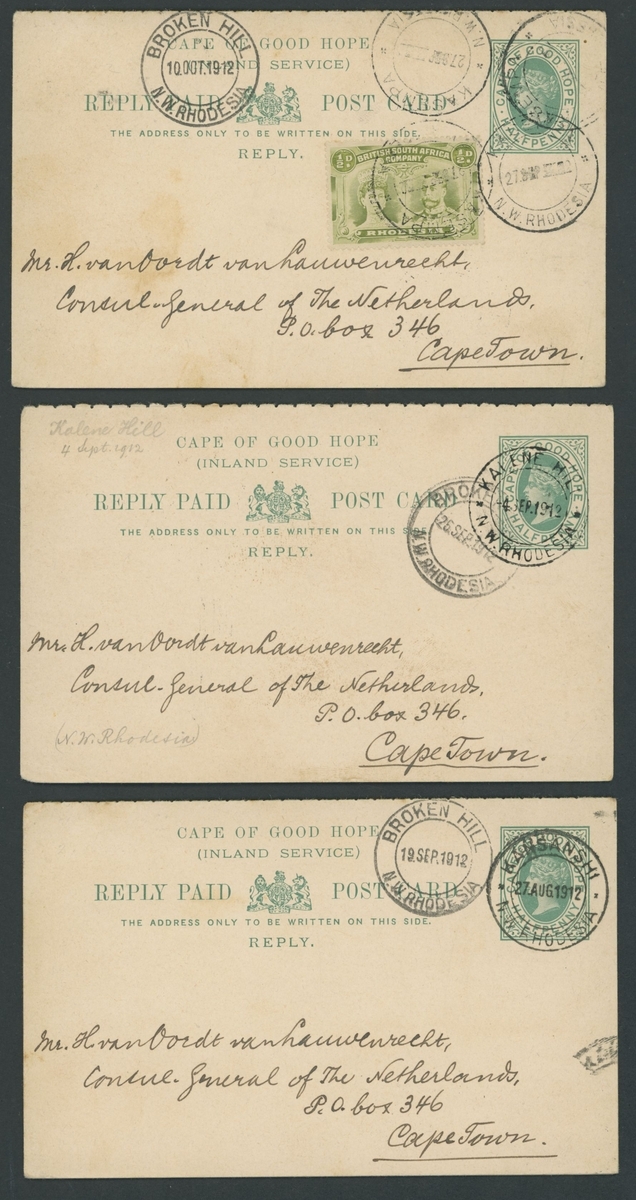 BROKEN HILL
10.OCT.1912
N.W.RHODESIA
N.W.RHODESIA
CAPE OF GOOD HOPE
(INLAND SERVICE)
REPLY PAID POST CARD
THE ADDRESS ONLY TO BE WRITTEN ON THIS SIDE.
REPLY.
CAPE OF GOOD HOPE
HALFPENNY
½d ½d
BRITISH SOUTH AFRICA
COMPANY
RHODESIA
N.W.RHODESIA
Mr. H. van Oordt van Lauwenrecht,
Consul-General of The Netherlands,
P.O. box 346
CapeTown.
Kalene Hill
4 Sept. 1912
CAPE OF GOOD HOPE
(INLAND SERVICE)
REPLY PAID POST CARD
THE ADDRESS ONLY TO BE WRITTEN ON THIS SIDE.
REPLY.
GOOD HOPE
KALENE HILL
-4 SEP.1912
N.W.RHODESIA
26.SEP.1912
N.W.RHODESIA
Mr. H. van Oordt van Lauwenrecht,
Consul-General of The Netherlands,
P.O. box 346.
(N.W. Rhodesia)
CapeTown.
CAPE OF GOOD HOPE
(INLAND SERVICE)
REPLY PAID POST CARD
THE ADDRESS ONLY TO BE WRITTEN ON THIS SIDE.
REPLY.
BROKEN HILL
19.SEP.1912
N.W.RHODESIA
KANSANSHI
27.AUG.1912
N.W.RHODESIA
HALFPENNY
Mr. H. van Oordt van Lauwenrecht,
Consul-General of The Netherlands,
P.O. box 346
CapeTown.